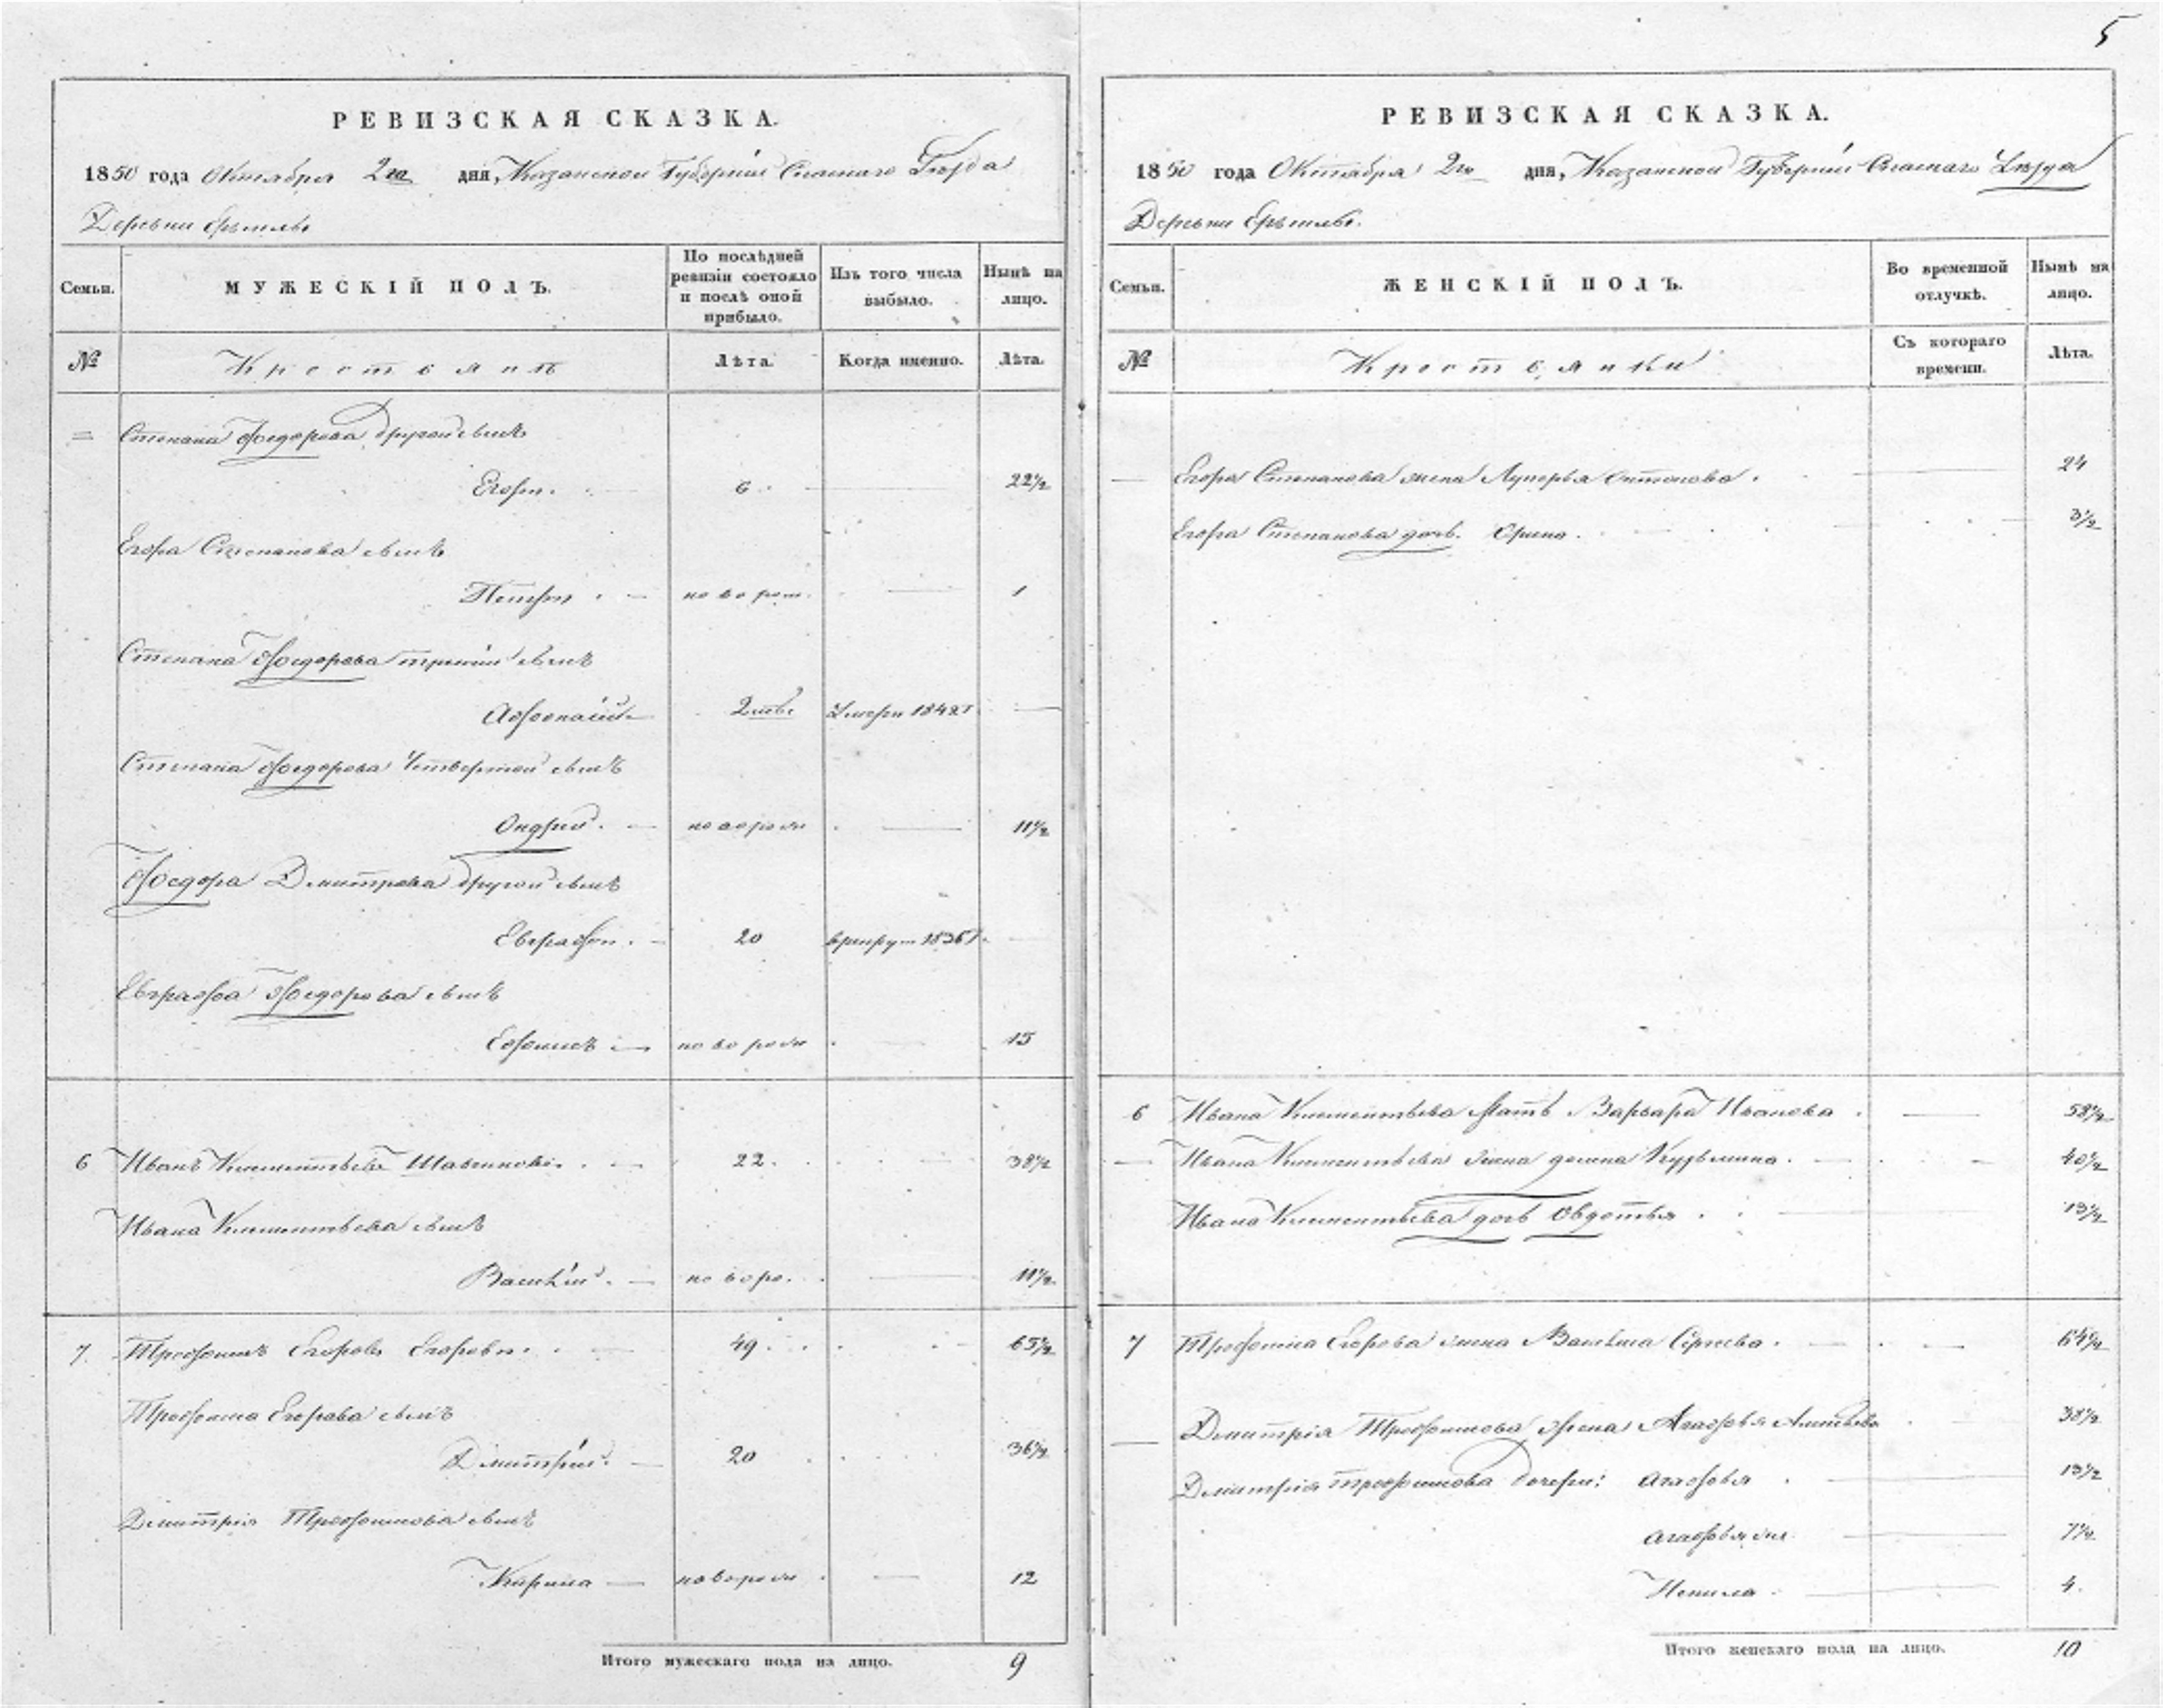 5
РЕВИЗСКАЯ СКАЗКА.
1850 года Октября 2го дня, Казанской Губерніи Спаскаго Уѣзда
Деревни
Семьи.
МУЖЕСКІЙ ПОЛЪ.
По послѣдней ревизіи состояло и послѣ оной прибыло.
Изъ того числа выбыло.
Нынѣ на лицо.
№
Крестьянъ
Лѣта.
Когда именно.
Лѣта.
Степана Федорова другой сынъ
Егоръ. 6 22½
Егора Степанова сынъ
Петръ 1
Степана Федорова третій сынъ
Афонасій 2 Умеръ
Степана Федорова Четвертой сынъ
Ондрей. новорож 11½
Федора Дмитрева другой сынъ
Евграфъ. 20
Евграфа Федорова сынъ
Ефимъ новорож 15
6 Иванъ Климентьевъ 22. 38½
Ивана Климентьева сынъ
Василій. 11½
7. Трофимъ Егоровъ Егоровъ. 49. 65½
Трофима Егорова сынъ
Дмитрій. 20 36½
Дмитрія Трофимова сынъ
новорож 12
Итого мужескаго пола на лицо. 9
РЕВИЗСКАЯ СКАЗКА.
1850 года Октября 2го дня, Казанской Губерніи Спаскаго Уѣзда
Деревни
Семьи.
ЖЕНСКІЙ ПОЛЪ.
Во временной отлучкѣ.
Нынѣ на лицо.
№
Крестьянки
Съ котораго времени.
Лѣта.
Егора Степанова жена Лукерья Онтонова. 24
Егора Степанова дочь. Орина. 3½
6 Ивана Климентьева Мать Варвара Иванова 58½
Ивана Климентьева жена Кузьмина. 40½
Ивана Климентьева дочь Овдотья 13½
7 Трофима Егорова жена Василиса Сергеева. 64½
Дмитрія Трофимова жена Агафья 38½
Дмитрія Трофимова дочери: Агафья 13½
7½
Ненила 4.
Итого женскаго пола на лицо. 10